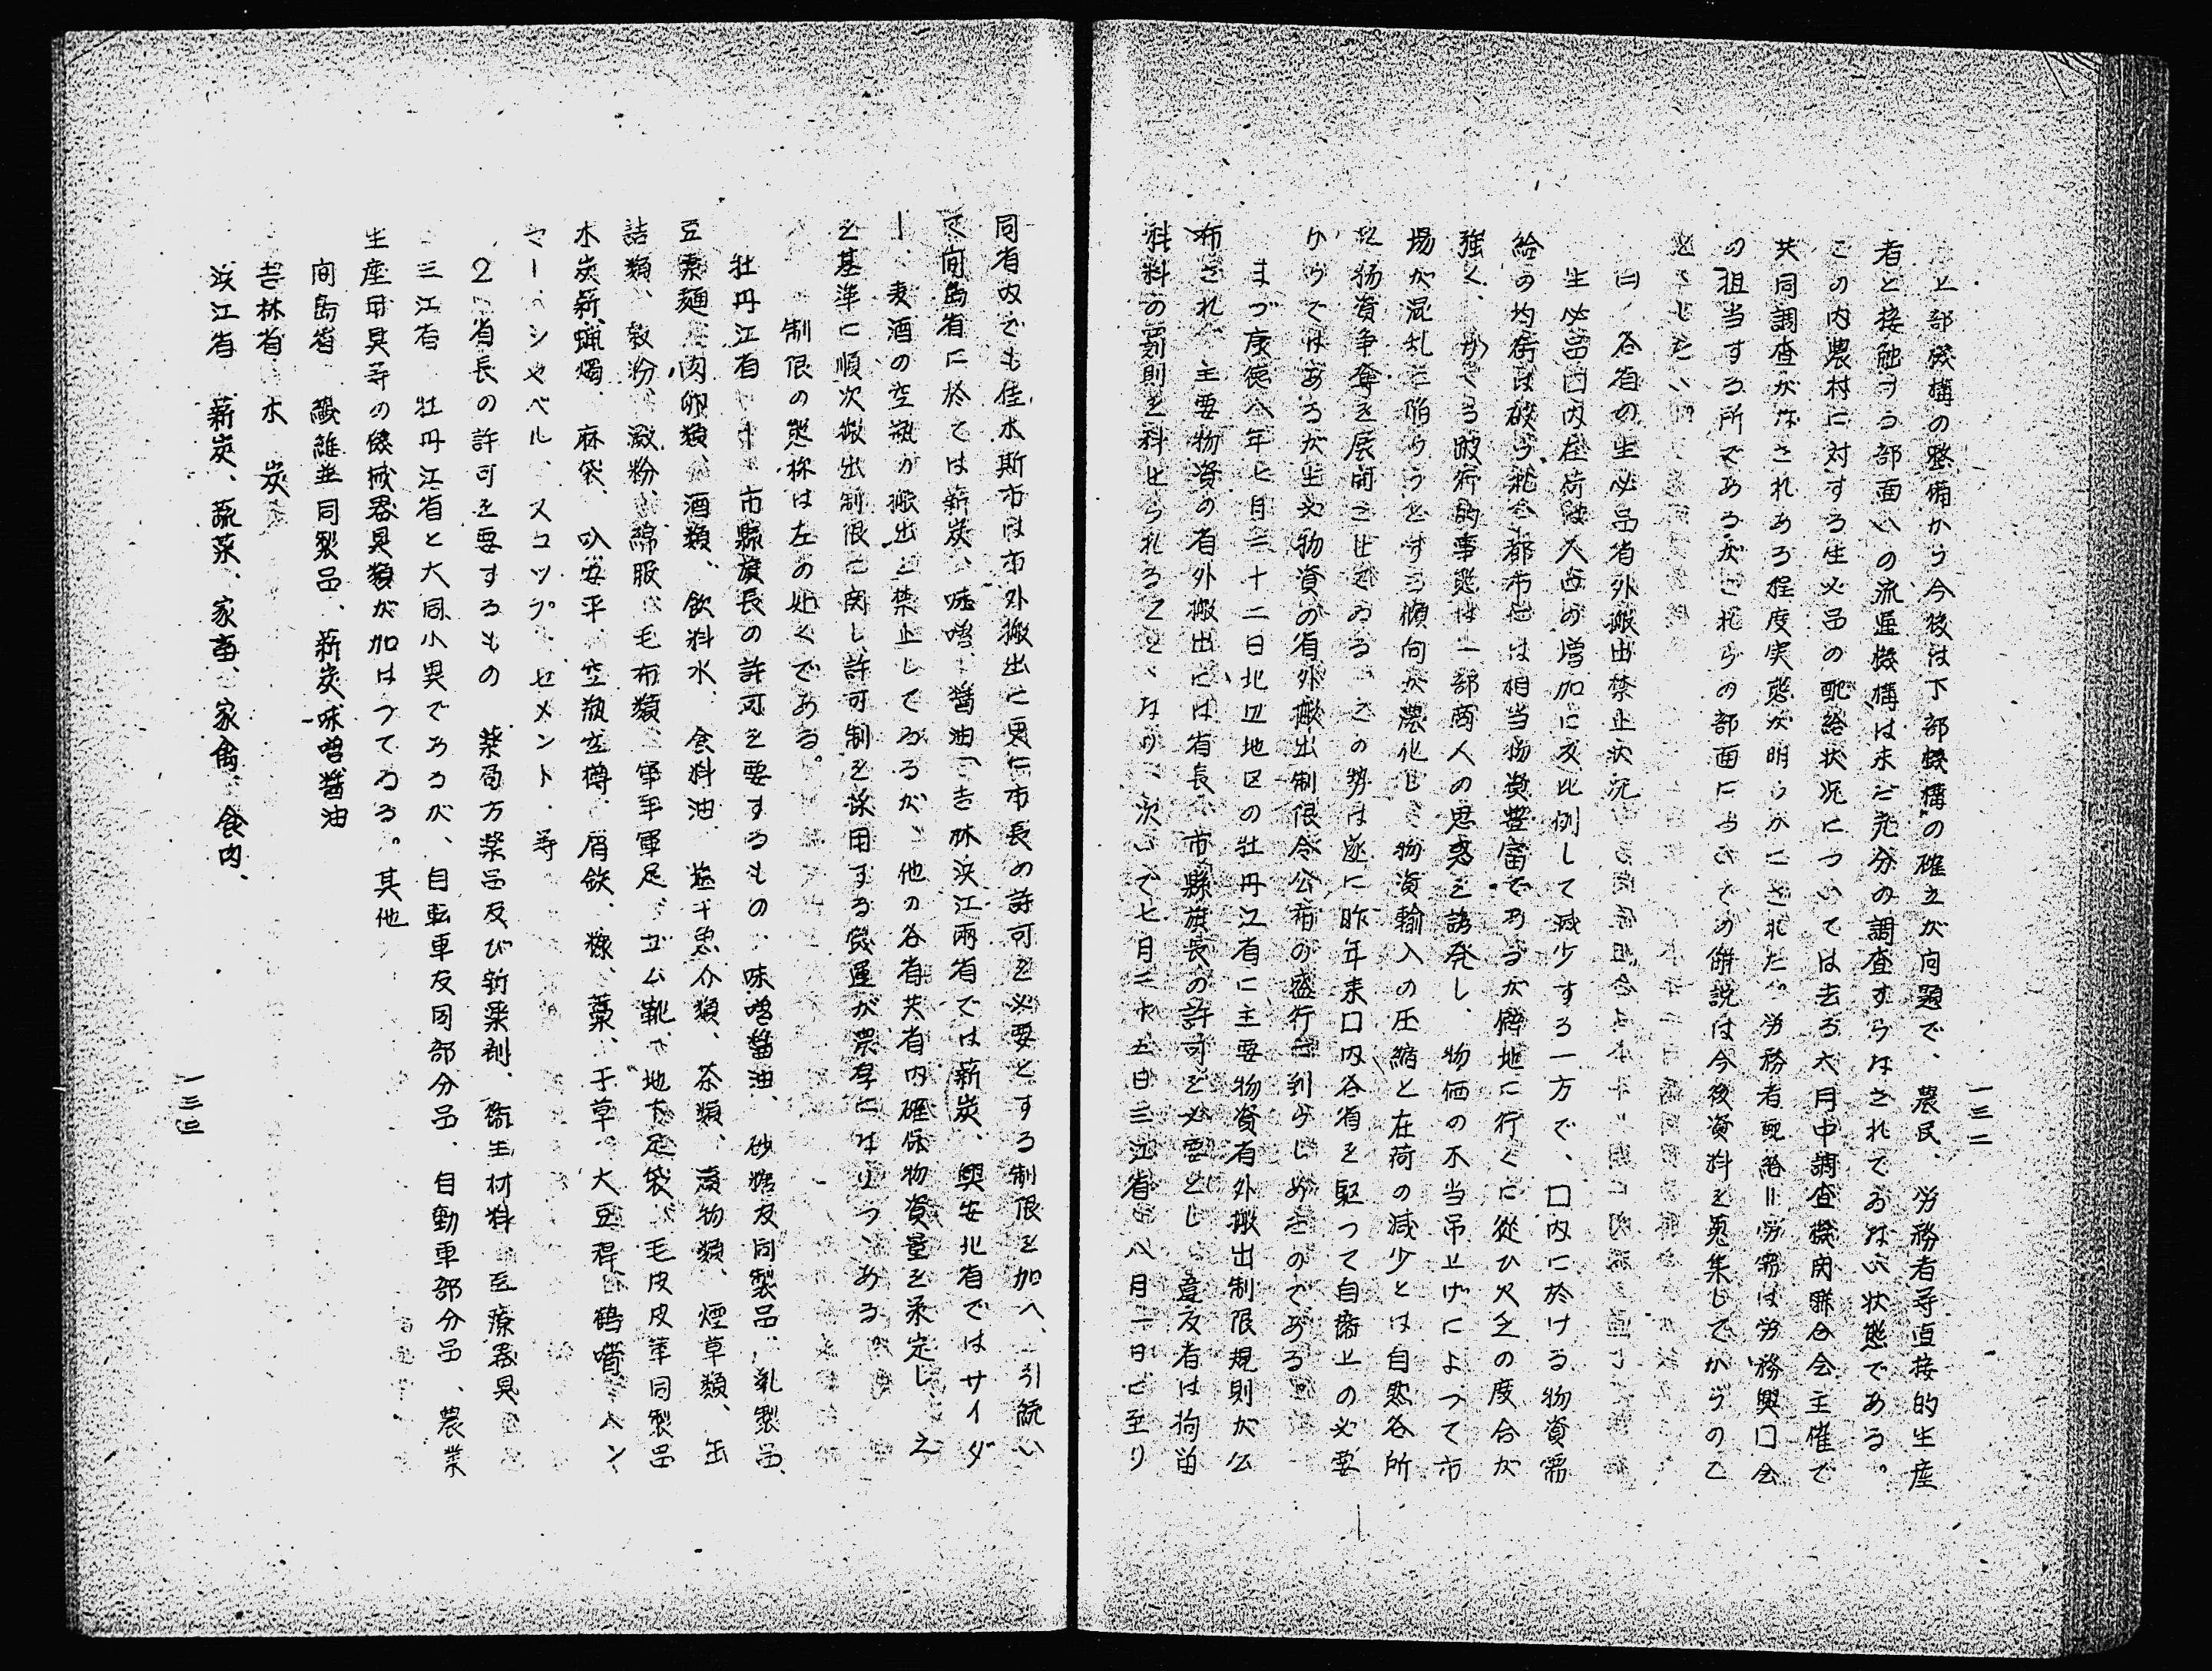 一三二
上部機構の整備から今後は下部機構の確立が问題で、農民、労務者等直接的生産
者と接触する部面への流通機構は未だ充分の調査すらなされてゐない状態である。
この内農村に対する生必品の配給状况については去る六月中調査機関聨合会主催で
共同調査がなされある程度実態が明らかにされた。労務者配給=労需は労務興口会
の担当する所であるがこれらの部面に
の解説は今後資料を蒐集してからのこ
ととしたい
各省の生必品省外搬出禁止状况
生必品口内在荷は人口の増加に反比例して減少する一方で、口内に於ける物資需
給の均衡は破られ今都市
は相当物資豊富であるが僻地に行くに従ひ欠乏の度合が
強く、かくる跛行的事態は一部商人の思惑を誘発し、物価の不当吊上げによつて市
場が混乱に陥らうとする傾向が濃化し、物資輸入の圧縮と在荷の減少とは自然各所
に物資争奪を展開させてゐる。この勢は遂に昨年来口内各省を駆つて自衛上の必要
からではあるが生必物資の省外搬出制限令公布の盛行に到らしめたのである。
まづ康徳八年七月二十二日北辺地区の牡丹江省に主要物資省外搬出制限規則が公
布され、主要物資の省外搬出には省長、市縣旗長の許可を必要とし、違反者は拘留
科料の罰則を科せられることゝなり、次いで七月二十五日三江省
八月一日に至り
同省内でも佳木斯市は市外搬出に更に市長の許可を必要とする制限を加へ、引続い
て间島省に於ては新炭、味噌、醤油、吉林浜江両省では薪炭、興安北省ではサイダ
ー、麦酒の空瓶の搬出を禁止してゐるが、他の各省共省内確保物資量を策定し、之
を基準に順次搬出制限に関し許可制を採用する気運が濃厚になりつゝある。
制限の態様は左の如くである。
牡丹江省
市縣旗長の許可を要するもの、味噌醤油、砂糖及同製品、乳製品、
豆素麺、肉卵類、酒類、飲料水、食料油、塩干魚介類、茶類、漬物類、煙草類、缶
詰類、穀粉、澱粉、綿服、毛布類、軍手軍足、ゴム靴、地下足袋、毛皮皮革同製品
木炭薪、蝋燭、麻袋、叺安平、空瓶空樽、屑鉄、糠、藁、干草、大豆稈、鶴嘴、ハン
マー、シヤベル、スコツプ、セメント、等
2 省長の許可を要するもの 薬局方薬品及び新薬剤、衛生材料、医療器具
三江省 牡丹江省と大同小異であるが、自転車及同部分品、自動車部分品、農業
生産用具等の機械器具類が加はつてゐる。其他
间島省 繊維並同製品、薪炭、味噌醤油
吉林省 木炭
浜江省 薪炭、蔬菜、家畜、家禽、食肉、
一三三